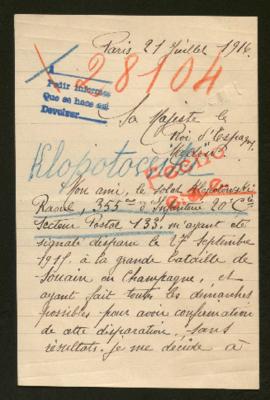 Paris 21 Juillet 1916.
28104
Pedir informes
Que se hace aquí
Devolver
Sa Majesté le
Roi d'Espagne
Klopotowski
Mon ami, le soldat Klopotowski
Raoul, 355ème d'Infanterie 20e Cie
Secteur Postal 133. m'ayant été
signalé disparu le 27 Septembre
1915. à la grande bataille de
Souain en Champagne, et
ayant fait toutes les démarches
possibles pour avoir confirmation
de cette disparation, sans
résultats. je me décide à